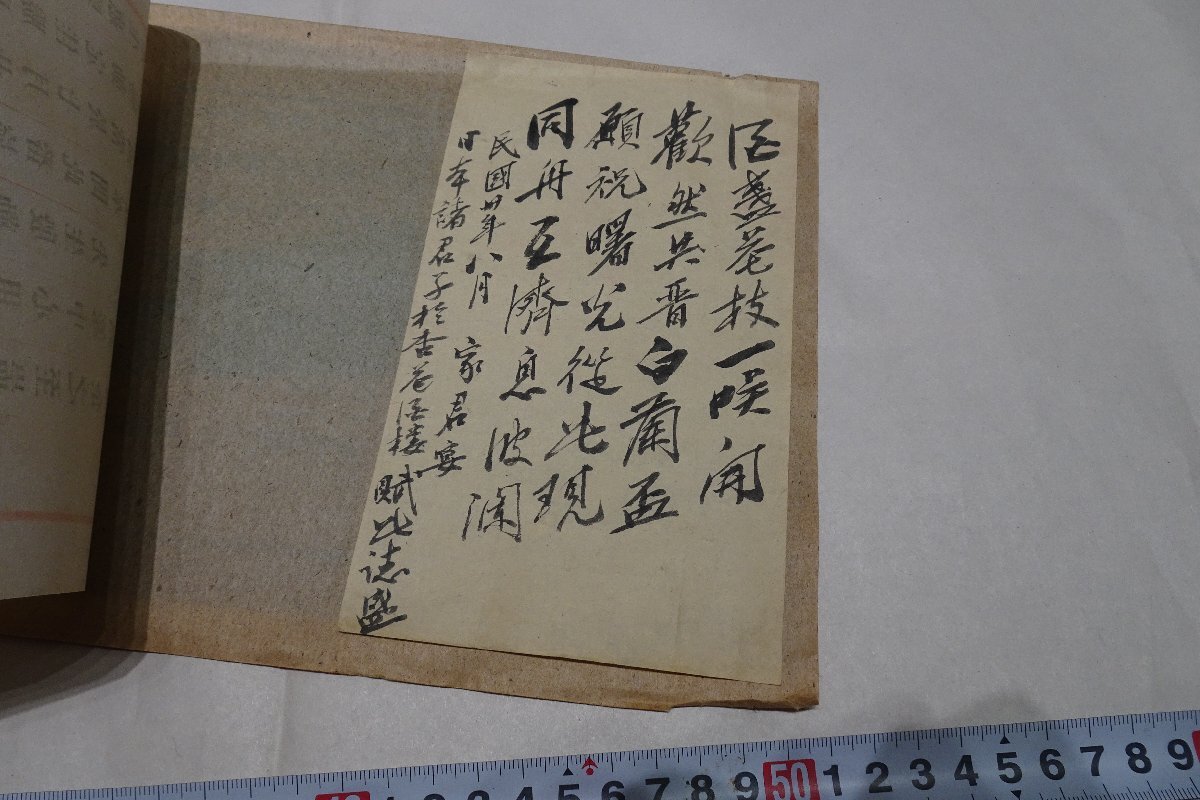 酒盞花枝一笑開
歡然共晋白蘭盃
願祝曙光從此現
同舟互濟息波瀾
民國卅年八月 家君宴
日本諸君子於杏花酒樓賦此誌盛
50 1 2 3 4 5 6 7 8 9
4 5 6 7 8 9